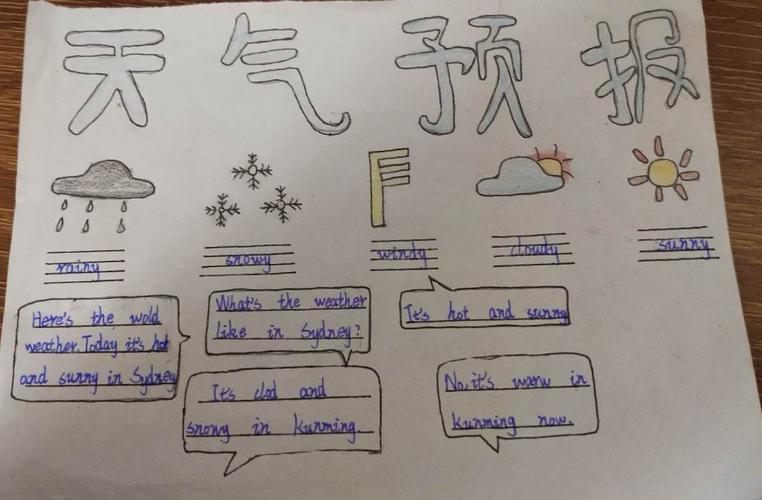 天气预报
rainy snowy windy cloudy sunny
Here's the wold
weather. Today it's hot
and sunny in Sydney
What's the weather
like in Sydney?
It's hot and sunny
It's clod and
snowy in Kunming.
No, it's warm in
Kunming now.